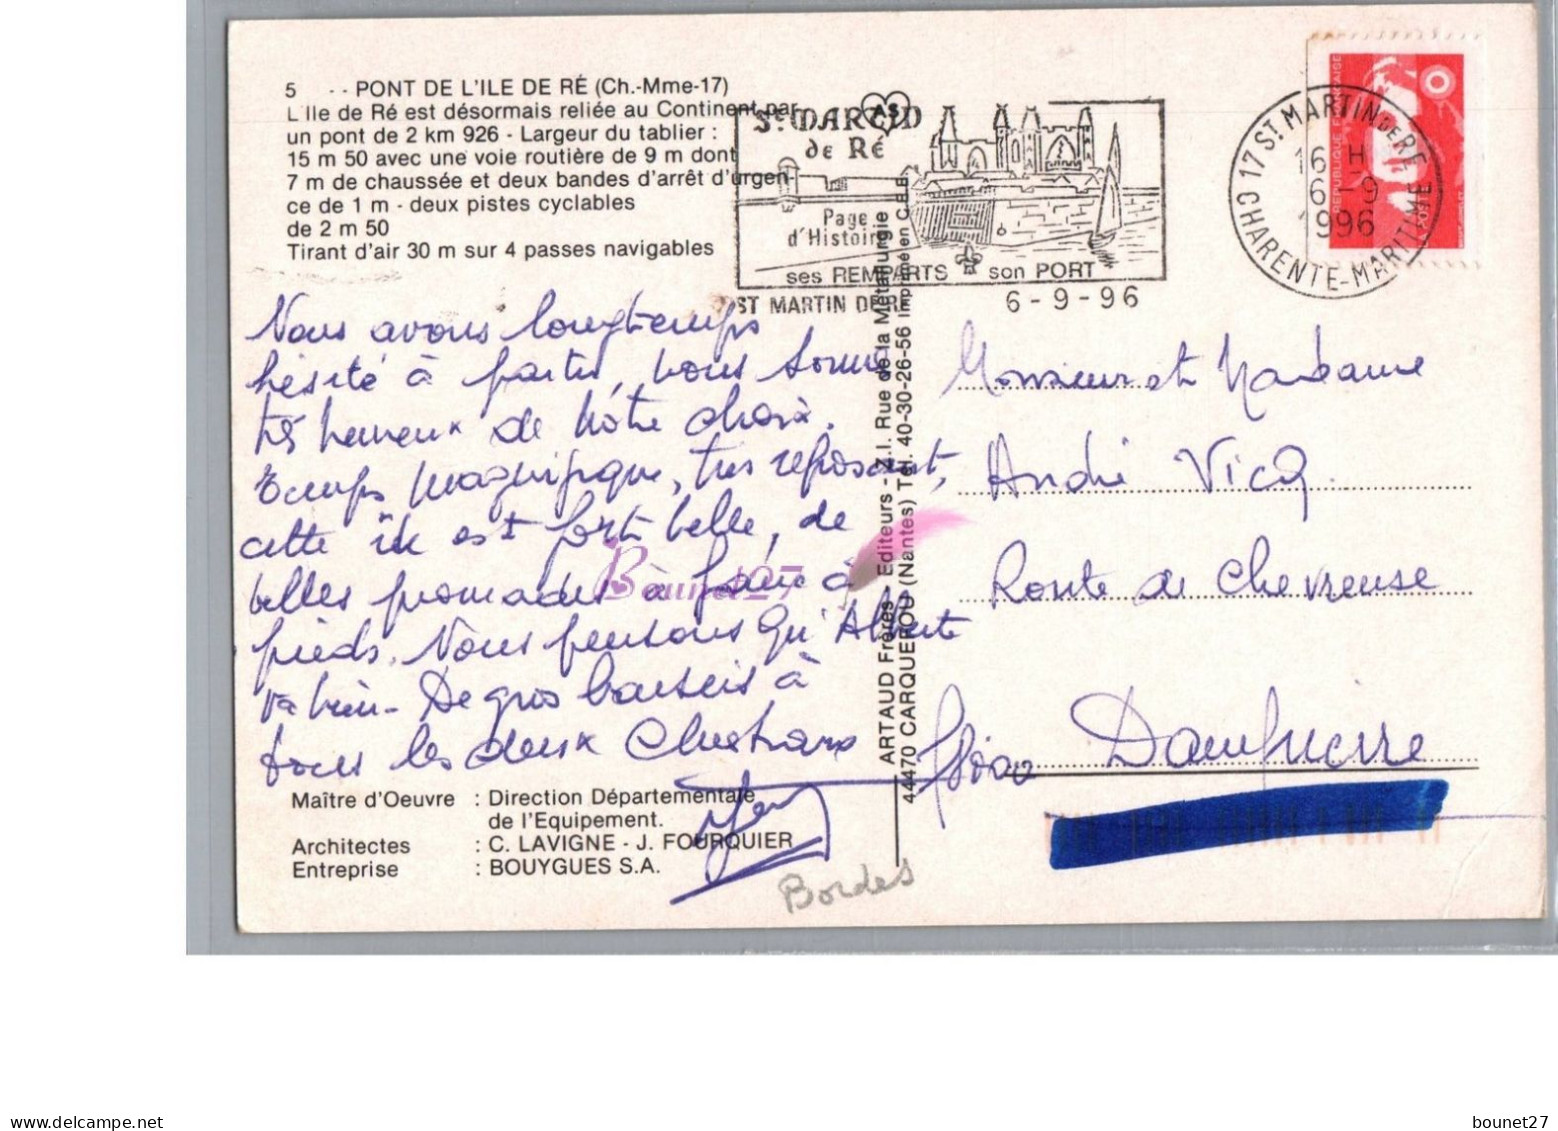 5 - - PONT DE L'ILE DE RÉ (Ch.-Mme-17)
L'Ile de Ré est désormais reliée au Continent par
un pont de 2 km 926 - Largeur du tablier :
15 m 50 avec une voie routière de 9 m dont
7 m de chaussée et deux bandes d'arrêt d'urgen-
ce de 1 m - deux pistes cyclables
de 2 m 50
Tirant d'air 30 m sur 4 passes navigables
St MARTIN
de Ré
Page
d'Histoire
ses REMPARTS son PORT
ST MARTIN DE 6-9-96
17 ST MARTIN DE RE
16 H
6 - 9
1996
CHARENTE-MARITIME
REPUBLIQUE FRANÇAISE
Nous avons longtemps
hésité à partir, nous sommes
très heureux de nôtre choix.
Temps magnifique, très reposant,
cette île est fort belle, de
belles promenades à faire à
pieds. Nous pensons qu'Alberte
va bien - De gros baisers à
tous les deux Christiane
Bounet27
Maître d'Oeuvre : Direction Départementale
de l'Equipement.
Architectes : C. LAVIGNE - J. FOURQUIER
Entreprise : BOUYGUES S.A.
Bordes
ARTAUD Frères - Editeurs - Z.I. Rue de la Métallurgie
44470 CARQUEFOU (Nantes) Tél. 40-30-26-56 Imprimé en C.E.E.
Monsieur et Madame
André Vicq
Route de Chevreuse
78720 Dampierre
delcampe.net
bounet27